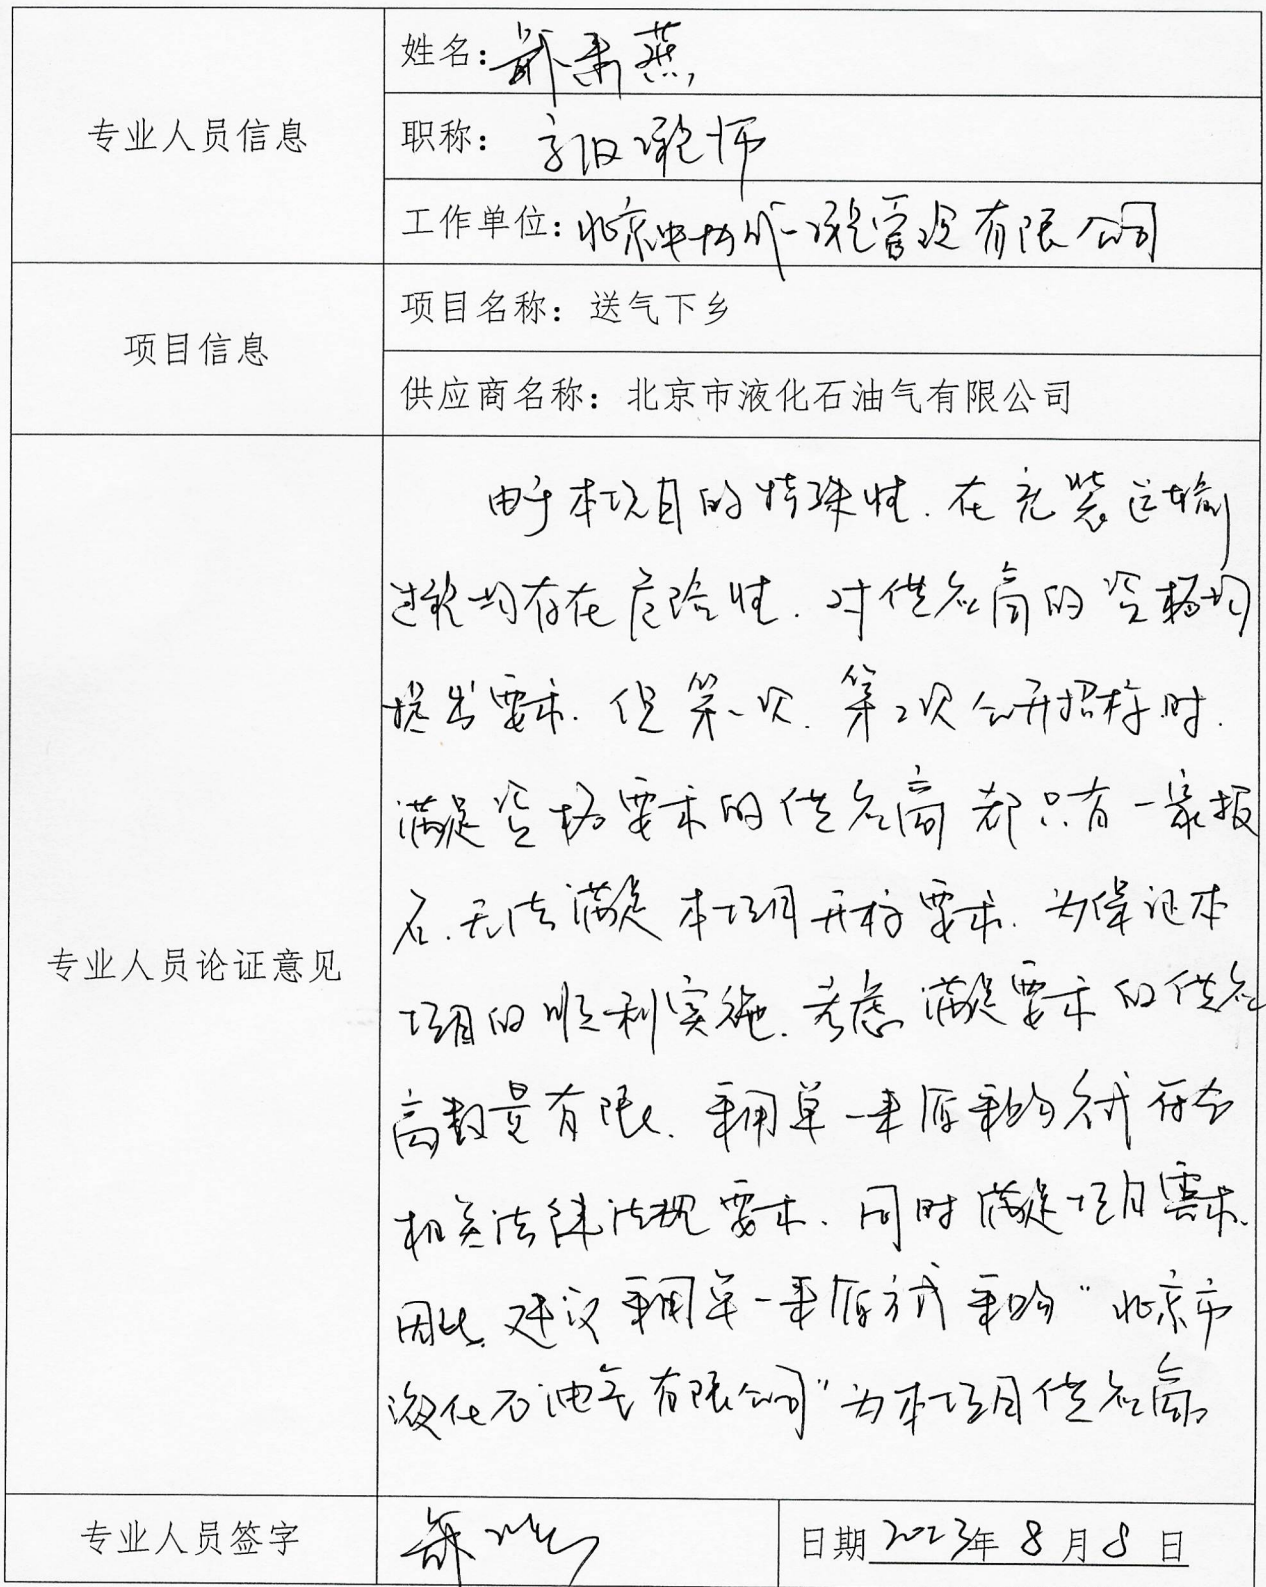 专业人员信息
姓名：
职称：高级工程师
工作单位：北京中协成工程管理有限公司
项目信息
项目名称：送气下乡
供应商名称：北京市液化石油气有限公司
专业人员论证意见
由于本项目的特殊性．在充装运输
过程均存在危险性．对供应商的资格均
提出要求．但第一次．第2次公开招标时．
满足资格要求的供应商都只有一家报
名．无法满足本项目开标要求．为保证本
项目的顺利实施．考虑满足要求的供应
商数量有限．采用单一来源采购方式符合
相关法律法规要求．同时满足项目需求．
因此．建议采用单一来源方式采购“北京市
液化石油气有限公司”为本项目供应商。
专业人员签字
日期 2023年 8 月 8 日